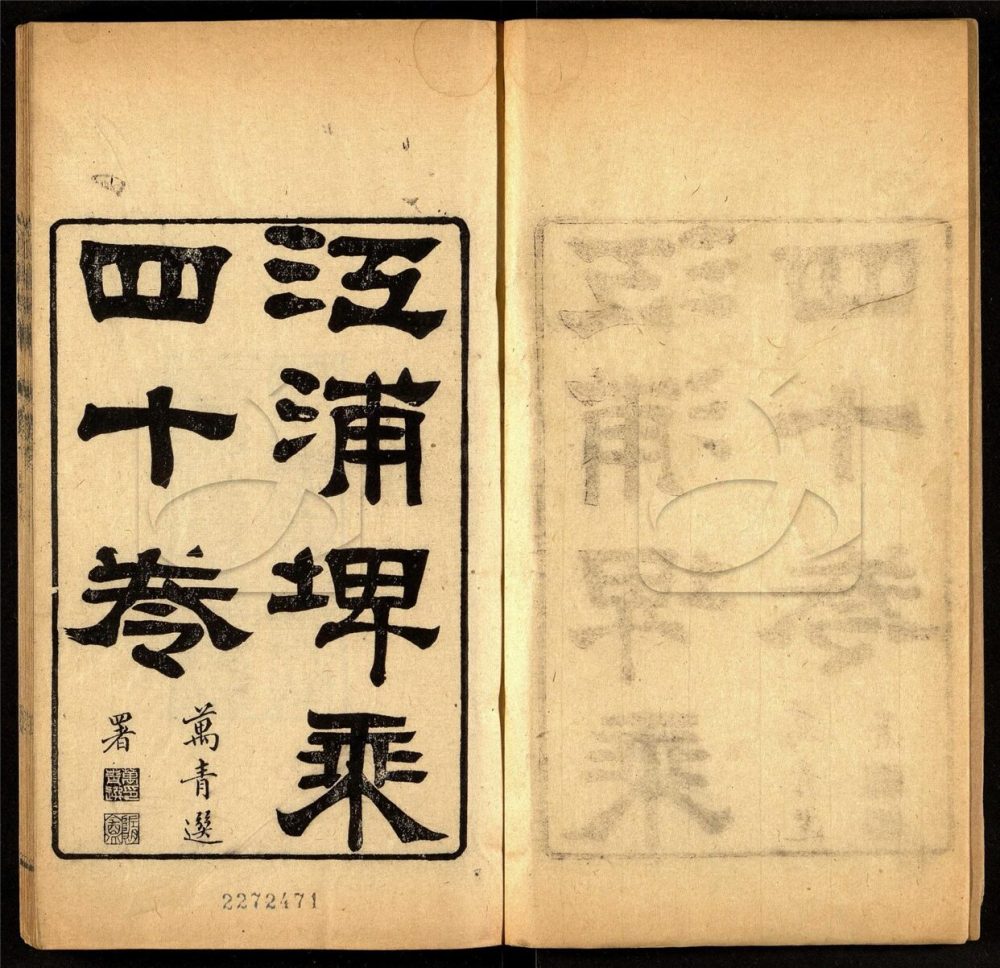 江浦埤乘
四十卷
萬青選
署
2272471